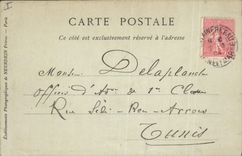 CARTE POSTALE
Ce côté est exclusivement réservé à l'adresse
Monsieur Delaplanche
officier d'Adm de 1re Classe
Rue Sidi-Bou-
Tunis
Etablissements Photographiques de NEURDEIN Frères. — Paris